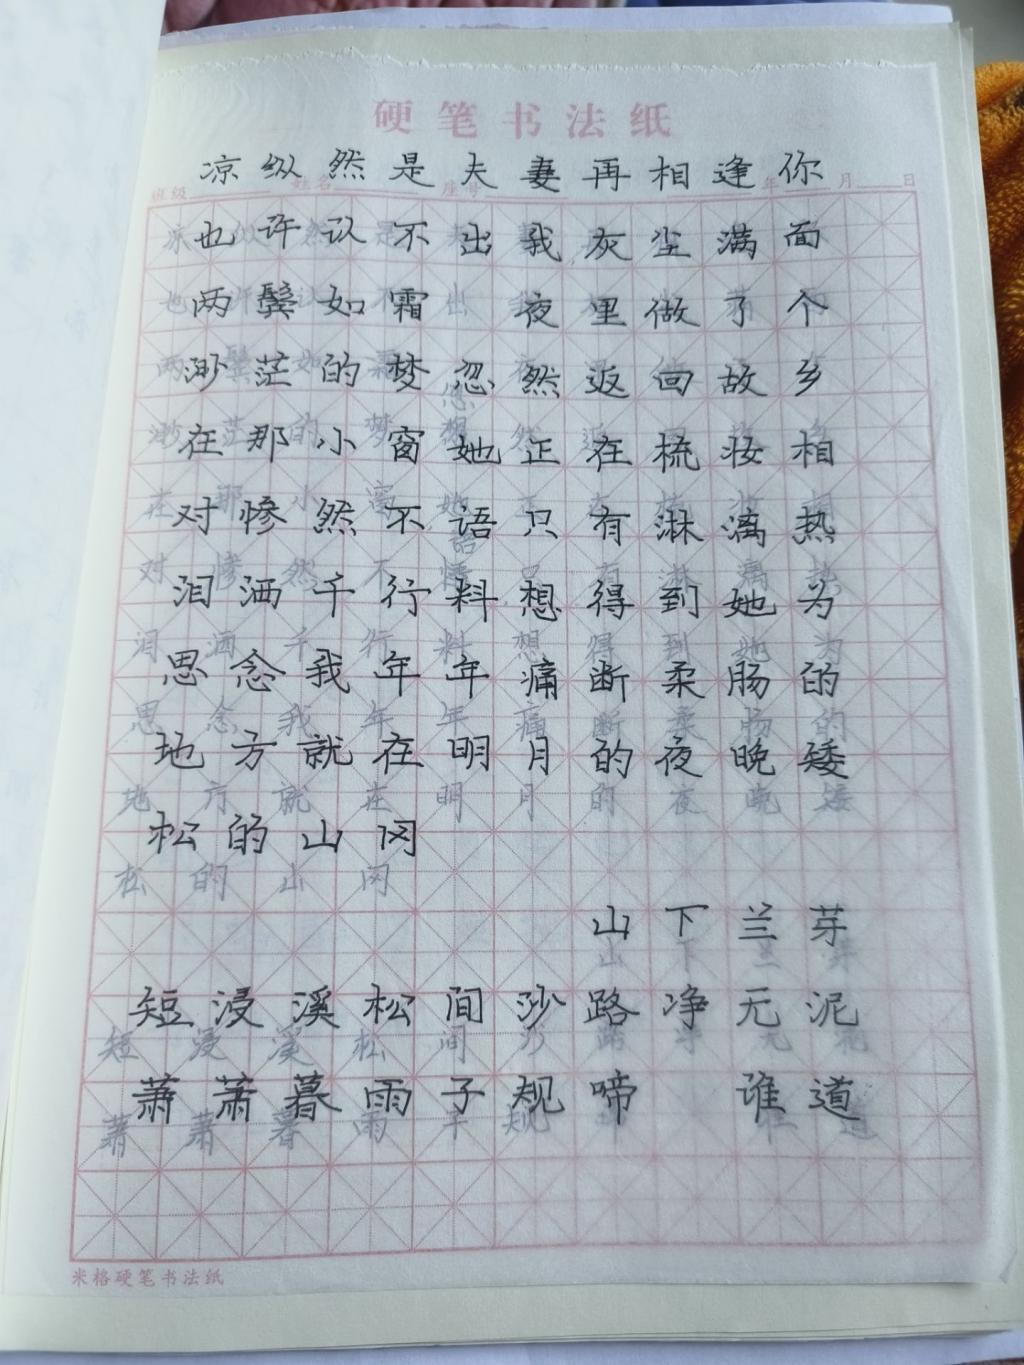 硬笔书法纸
凉纵然是夫妻再相逢你
班级 姓名 座号 年 月 日
也许认不出我灰尘满面
两鬓如霜 夜里做了个
渺茫的梦忽然返回故乡
在那小窗她正在梳妆相
对惨然不语只有淋漓热
泪洒千行料想得到她为
思念我年年痛断柔肠的
地方就在明月的夜晚矮
松的山冈
山下兰芽
短浸溪松间沙路净无泥
萧萧暮雨子规啼 谁道
米格硬笔书法纸